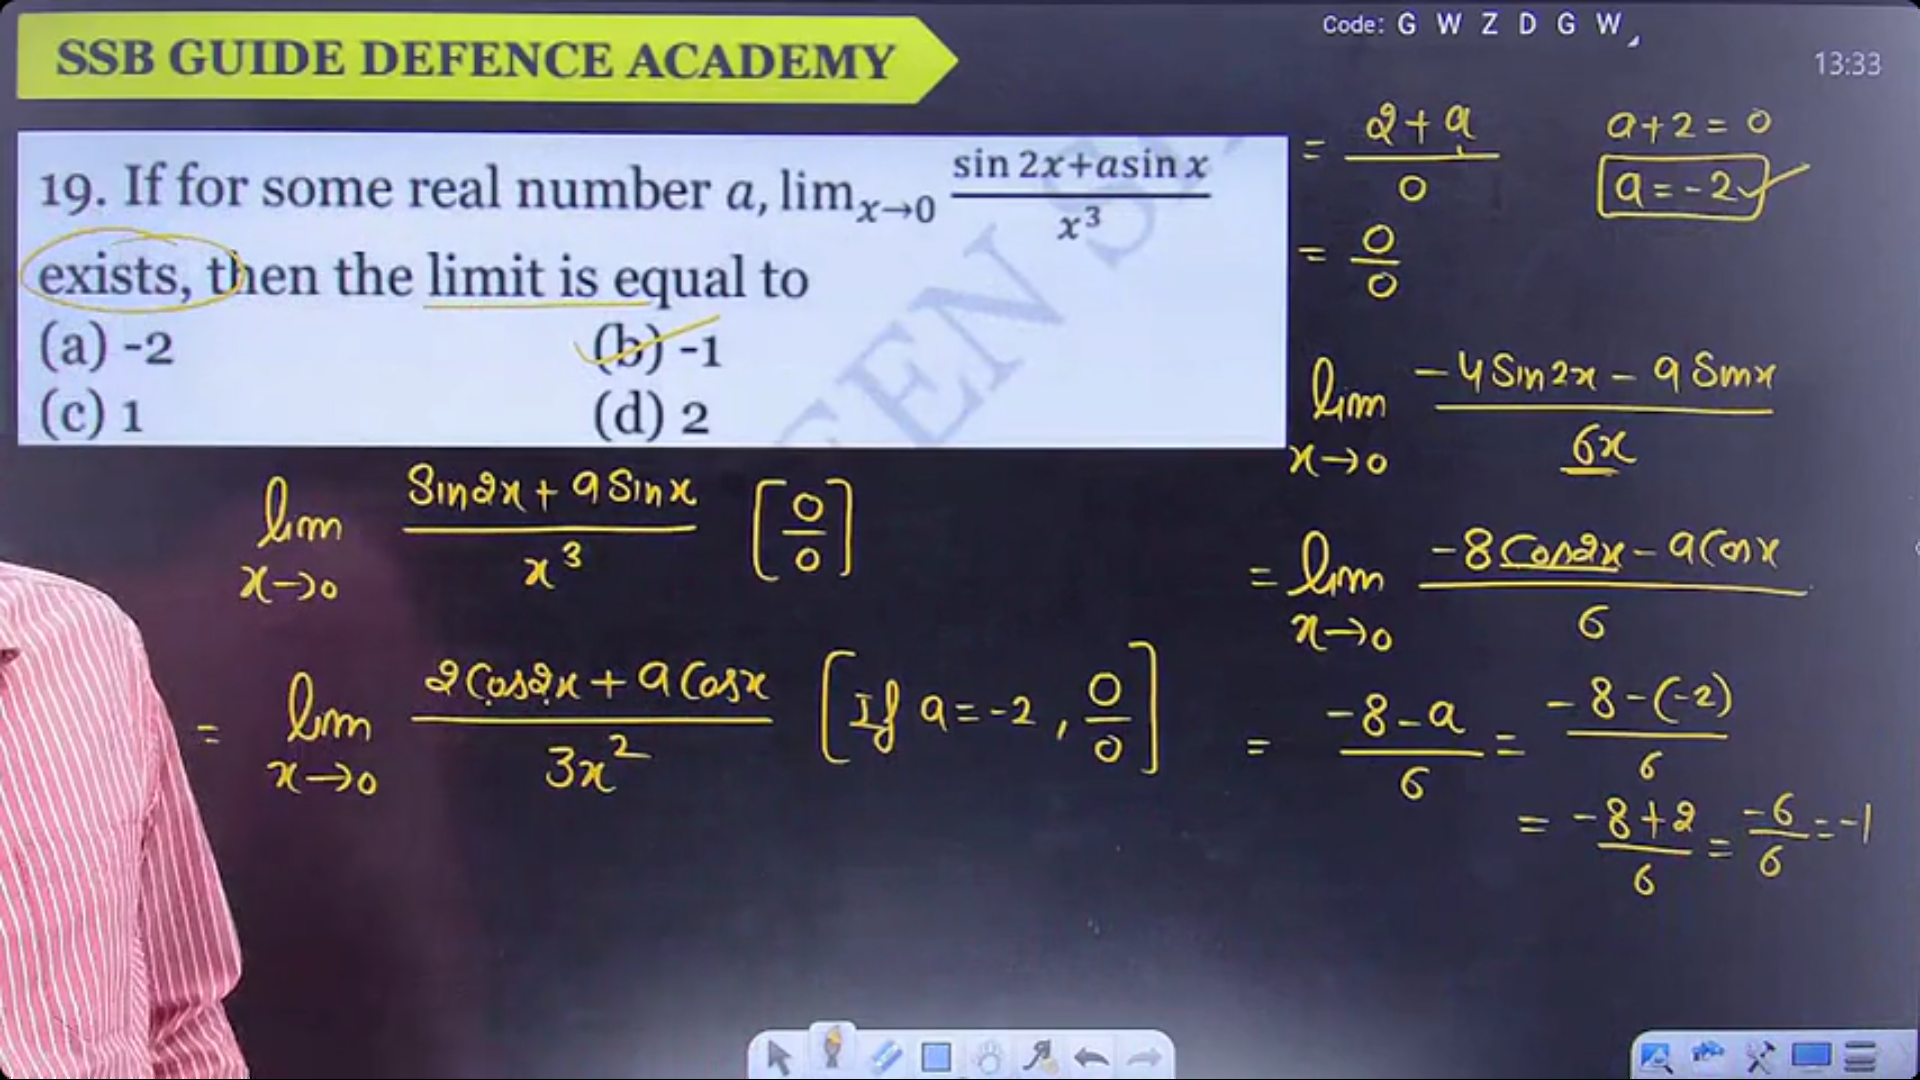 Code: G W Z D G W
13:33
SSB GUIDE DEFENCE ACADEMY
19. If for some real number a, lim x→0 (sin 2x+asin x)/x³
exists, then the limit is equal to
(a) -2 (b) -1
(c) 1 (d) 2
lim x→0 (Sin2x + a Sinx)/x³ [0/0]
= lim x→0 (2Cos2x + a Cosx)/3x² [If a = -2, 0/0]
= (2+a)/0 a+2 = 0
a = -2
= 0/0
lim x→0 (-4Sin2x - a Sinx)/6x
= lim x→0 (-8Cos2x - a Cosx)/6
= (-8-a)/6 = (-8-(-2))/6
= (-8+2)/6 = -6/6 = -1